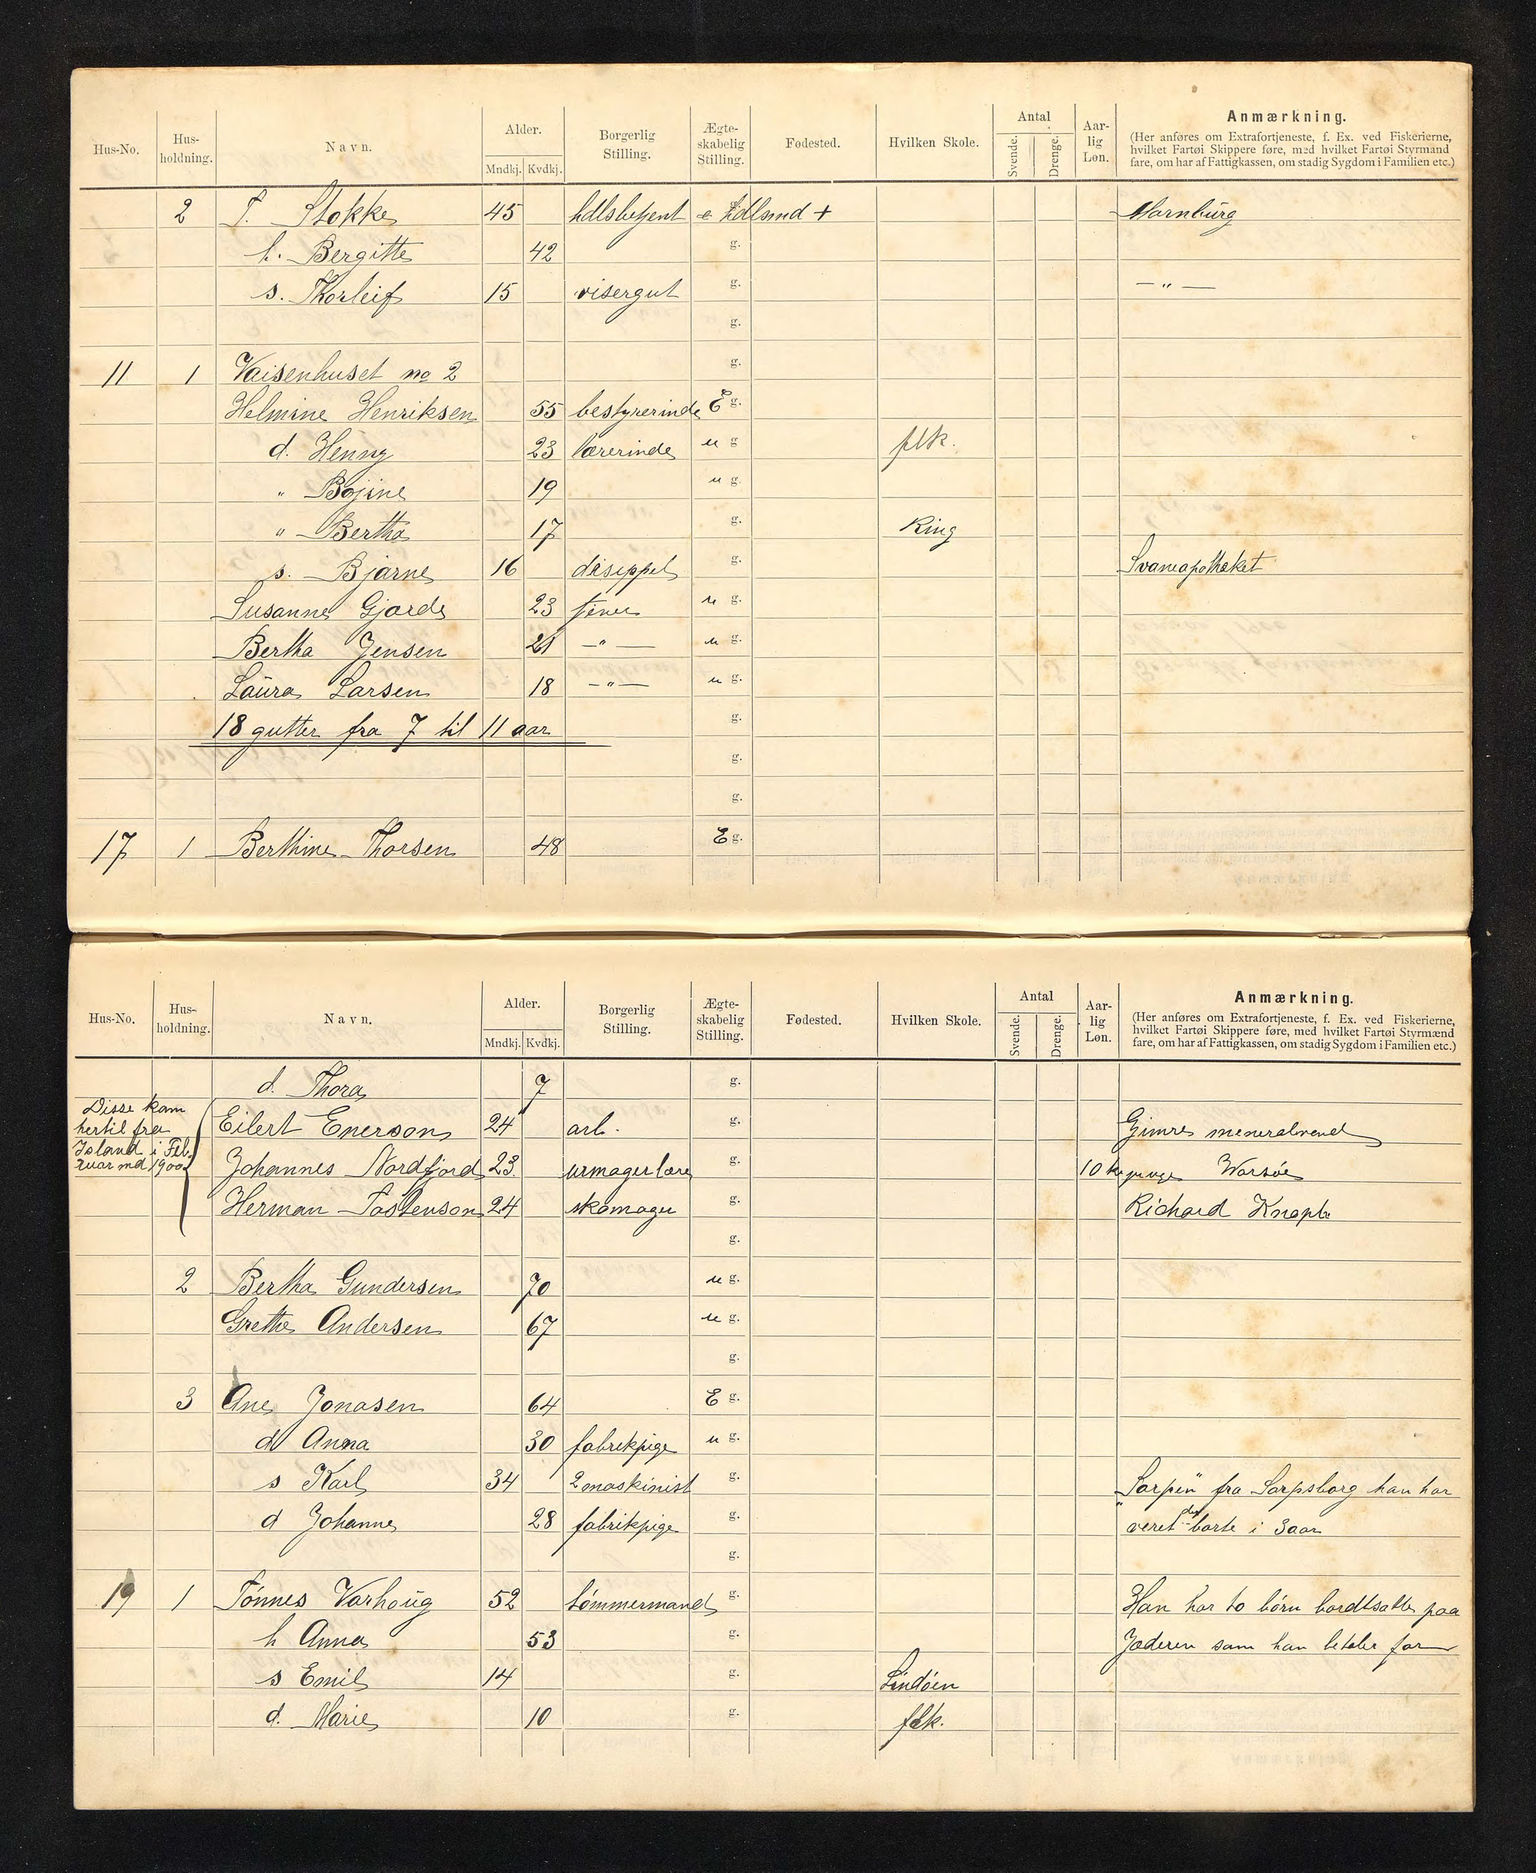 Hus-No. Hus-holdning. Navn. Alder. Mndkj. Kvdkj. Borgerlig Stilling. Ægte-skabelig Stilling. Fødested. Hvilken Skole. Antal Svende. Drenge. Aar-lig Løn. Anmærkning.
(Her anføres om Extrafortjeneste, f. Ex. ved Fiskerierne,
hvilket Fartøi Skippere føre, med hvilket Fartøi Styrmænd
fare, om har af Fattigkassen, om stadig Sygdom i Familien etc.)
2 T. Stokke 45 hdlsbetjent e hdlsmd + Marnburg
h. Bergitte 42 g.
s. Thorleif 15 visergut g. — " —
g.
11 1 Vaisenhuset no 2 g.
Helmine Henriksen 55 bestyrerinde E g.
d. Henny 23 lærerinde u g flk.
" Bojine 19 u g.
" Bertha 17 g. King
s. Bjarne 16 disippel g. Svaneapotheket
Susanne Gjorde 23 tjener u g.
Bertha Jensen 21 — " — u g.
Laura Larsen 18 — " — u g.
18 gutter fra 7 til 11 aar g.
g.
g.
17 1 Berthine Thorsen 48 E g.
Hus-No. Hus-holdning. Navn. Alder. Mndkj. Kvdkj. Borgerlig Stilling. Ægte-skabelig Stilling. Fødested. Hvilken Skole. Antal Svende. Drenge. Aar-lig Løn. Anmærkning.
(Her anføres om Extrafortjeneste, f. Ex. ved Fiskerierne,
hvilket Fartøi Skippere føre, med hvilket Fartøi Styrmænd
fare, om har af Fattigkassen, om stadig Sygdom i Familien etc.)
d. Thora 7 g.
Disse kom
hertil fra
Island i Feb.
ruar md 1900
Eilert Enerson 24 arb. g. Gimre mineralvand
Johannes Nordfjord 23 urmagerlære g. 10 kr Warsøe
Herman Tostenson 24 skomager g. Richard Knoph
g.
2 Bertha Gundersen 70 u g.
Grethe Andersen 67 u g.
g.
3 Ane Jonasen 64 E g.
d Anna 30 fabrikpige u g.
s Karl 34 2 maskinist g. "Sarpen" fra Sarpsborg han har
d Johanne 28 fabrikpige g. veret der borte i 3 aar
g.
19 1 Tønnes Varhoug 52 tømmermand g. Han har to børn bordtsatte paa
h Anna 53 g. Jæderen som han betaler for
s Emil 14 g. Lindøen
d. Marie 10 g. flk.